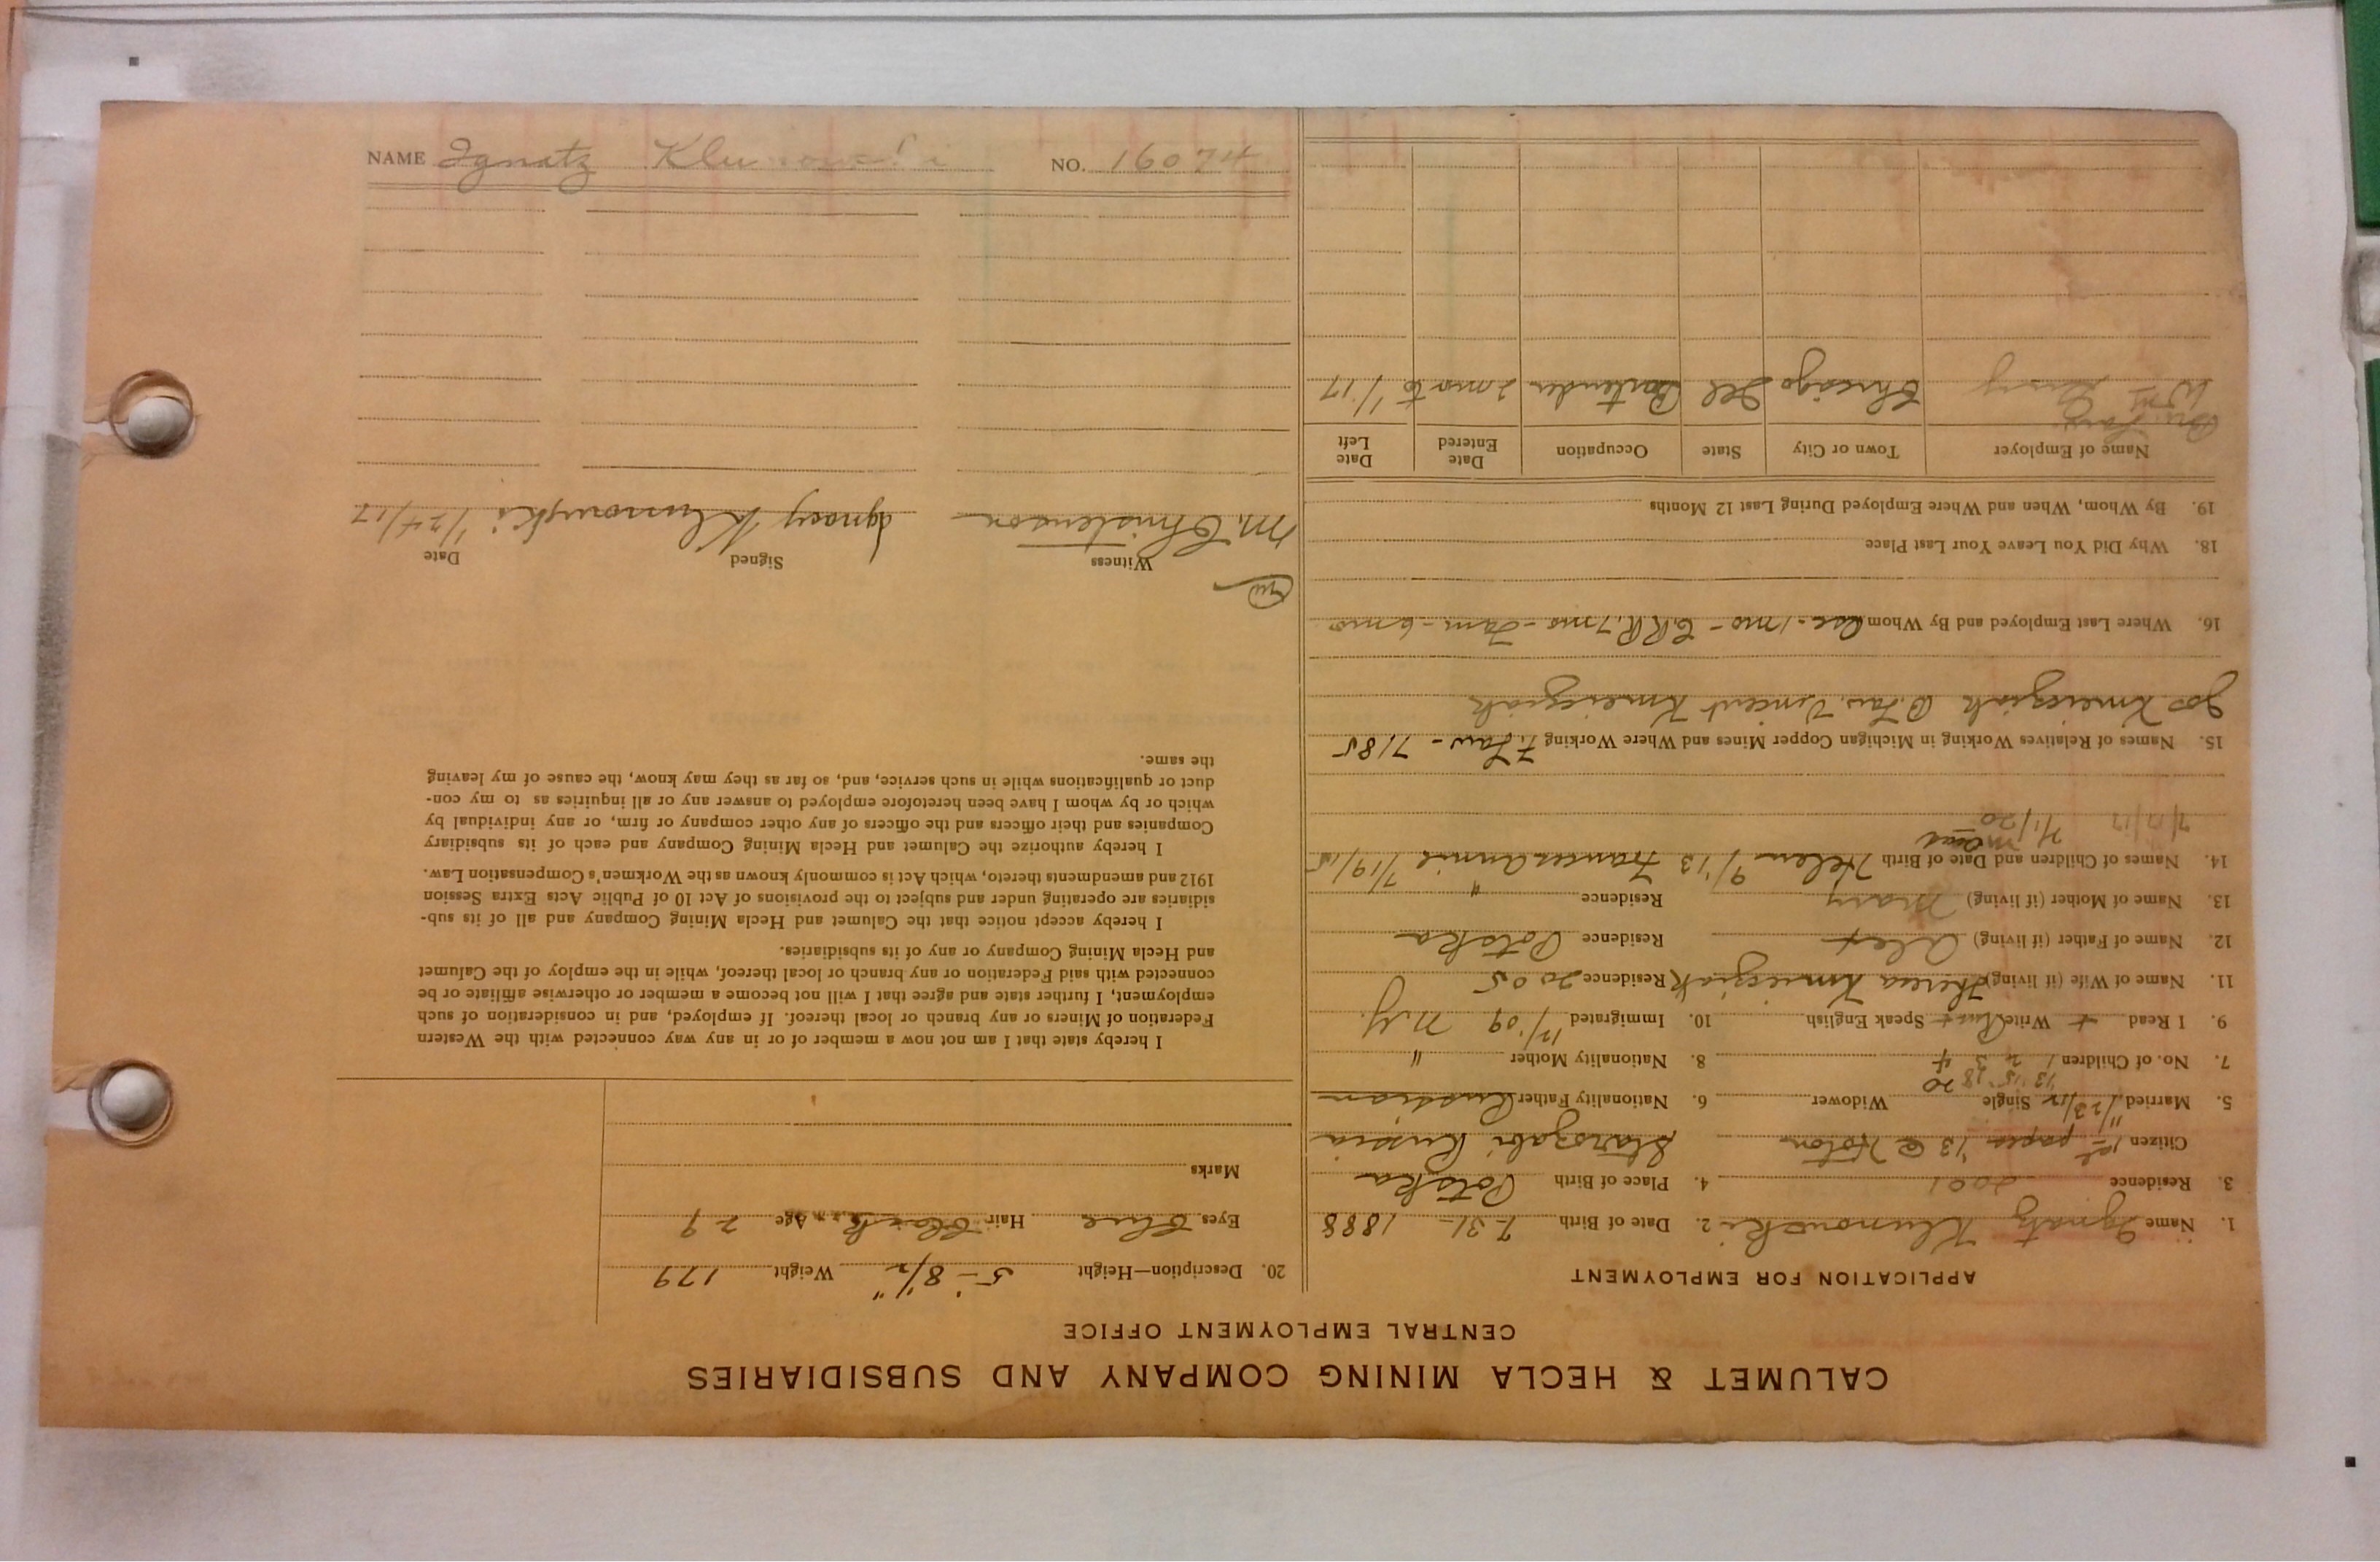 CALUMET & HECLA MINING COMPANY AND SUBSIDIARIES
CENTRAL EMPLOYMENT OFFICE
APPLICATION FOR EMPLOYMENT
1. Name Ignatz Klumowski 2. Date of Birth 7-31- 1888
3. Residence 2001 4. Place of Birth Potska
Citizen 1st paper '13 @ Hoton Russia
5. Married 1/23/12 Single Widower 6. Nationality Father Russian
'13 '15 '18 20
7. No. of Children 1 2 3 4 8. Nationality Mother "
9. I Read + Write Speak English 10. Immigrated 12/'09 N.Y.
11. Name of Wife (if living) Residence 2005
12. Name of Father (if living) Alex Residence Potska
13. Name of Mother (if living) Mary Residence "
14. Names of Children and Date of Birth Helen 9/'13 Frances Annie 7/19/15
7/1/20
15. Names of Relatives Working in Michigan Copper Mines and Where Working F. Law - 7185
Jos B. Law. Vincent
16. Where Last Employed and By Whom 1 mo - C.R.R. 7 mo - Tam - 6 mo
18. Why Did You Leave Your Last Place
19. By Whom, When and Where Employed During Last 12 Months
Name of Employer Town or City State Occupation Date Entered Date Left
Chicago Ill Bartender 2 mo to 1/17
20. Description—Height 5'- 8 1/2" Weight 179
Eyes Blue Hair Black Age 29
Marks
I hereby state that I am not now a member of or in any way connected with the Western
Federation of Miners or any branch or local thereof. If employed, and in consideration of such
employment, I further state and agree that I will not become a member or otherwise affiliate or be
connected with said Federation or any branch or local thereof, while in the employ of the Calumet
and Hecla Mining Company or any of its subsidiaries.
I hereby accept notice that the Calumet and Hecla Mining Company and all of its sub-
sidiaries are operating under and subject to the provisions of Act 10 of Public Acts Extra Session
1912 and amendments thereto, which Act is commonly known as the Workmen's Compensation Law.
I hereby authorize the Calumet and Hecla Mining Company and each of its subsidiary
Companies and their officers and the officers of any other company or firm, or any individual by
which or by whom I have been heretofore employed to answer any or all inquiries as to my con-
duct or qualifications while in such service, and, so far as they may know, the cause of my leaving
the same.
Witness Signed Date
M. Christenson Ignacy Klumowski 1/24/17
NAME Ignatz NO. 16074